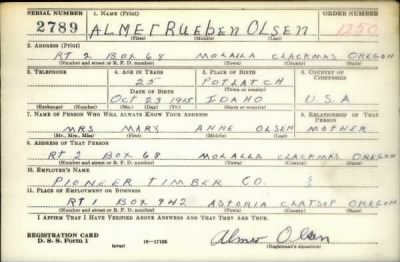 SERIAL NUMBER 1. NAME (Print) ORDER NUMBER
2789 ALMET RUEBEN OLSEN 1250
(First) (Middle) (Last)
2. ADDRESS (Print)
RT 2 BOX 68 MOLALLA CLACKMAS OREGON
(Number and street or R. F. D. number) (Town) (County) (State)
3. TELEPHONE 4. AGE IN YEARS 5. PLACE OF BIRTH 6. COUNTRY OF CITIZENSHIP
25 POTLATCH
DATE OF BIRTH (Town or county)
OCT 23 1915 IDAHO U.S.A
(Exchange) (Number) (Mo.) (Day) (Yr.) (State or country)
7. NAME OF PERSON WHO WILL ALWAYS KNOW YOUR ADDRESS 8. RELATIONSHIP OF THAT PERSON
MRS MARY ANNE OLSEN MOTHER
(Mr., Mrs., Miss) (First) (Middle) (Last)
9. ADDRESS OF THAT PERSON
RT 2 BOX 68 MOLALLA CLACKMAS OREGON
(Number and street or R. F. D. number) (Town) (County) (State)
10. EMPLOYER'S NAME
PIONEER TIMBER CO.
11. PLACE OF EMPLOYMENT OR BUSINESS
RT 1 BOX 942 ASTORIA CLATSOP OREGON
(Number and street or R. F. D. number) (Town) (County) (State)
I AFFIRM THAT I HAVE VERIFIED ABOVE ANSWERS AND THAT THEY ARE TRUE.
REGISTRATION CARD
D. S. S. Form 1 (over) 16—17105 Almer Olsen
(Registrant's signature)